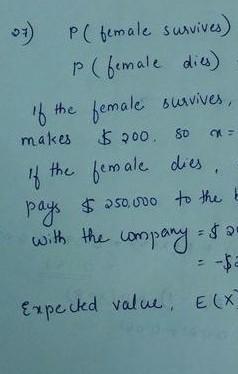 27) P( female survives)
P( female dies)
If the female survives,
makes $ 200. so x =
If the female dies,
pays $ 250,000 to the
with the company = $ 2
= -$2
Expected value, E(X